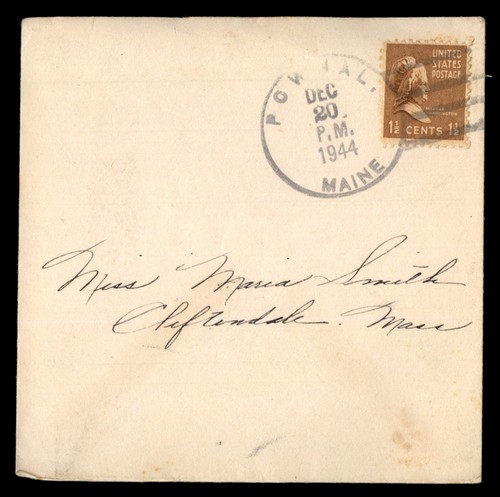 POWNAL,
DEC
20
P.M.
1944
MAINE
UNITED
STATES
POSTAGE
1½ CENTS 1½
Miss Maria Smith
Cliftondale. Mass